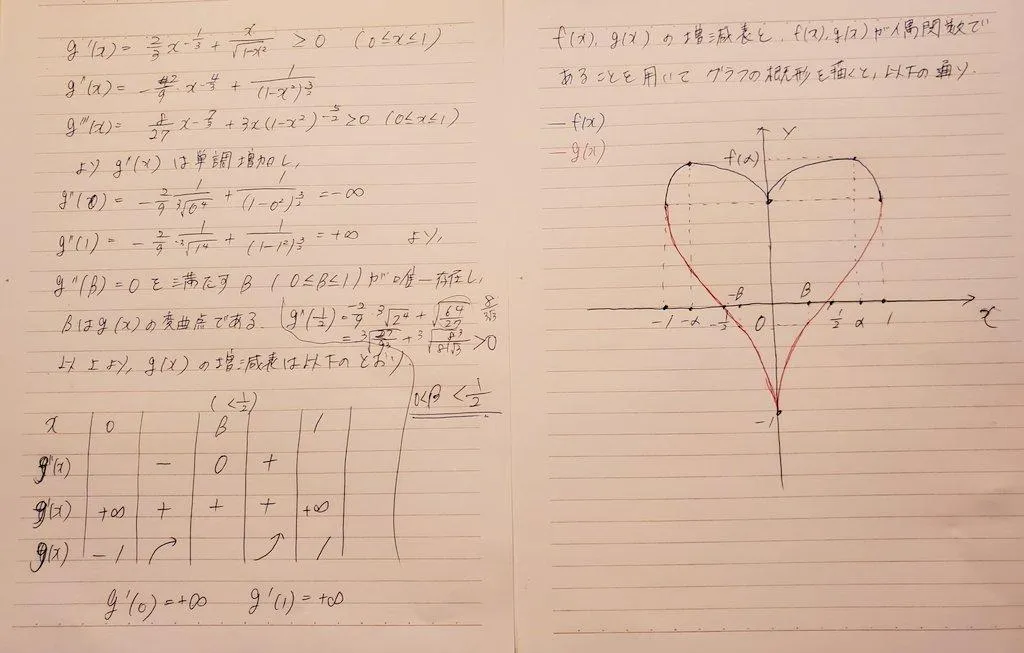 g'(x) = 2/3 x^{-1/3} + x/√(1-x²) ≥ 0 (0≤x≤1)
g''(x) = -2/9 · x^{-4/3} + 1/(1-x²)^{3/2}
g'''(x) = 8/27 x^{-7/3} + 3x(1-x²)^{-5/2} ≥ 0 (0≤x≤1)
より g''(x) は単調増加し,
g''(0) = -2/9 1/∛0⁴ + 1/(1-0²)^{3/2} = -∞
g''(1) = -2/9 · 1/∛1⁴ + 1/(1-1²)^{3/2} = +∞ より,
g''(β) = 0 を満たす β (0≤β≤1) が唯一存在し,
βは g(x) の変曲点である.
g''(1/2) = -2/9 · ∛2⁴ + √(64/27) 8/3√3
> 0
以上より, g(x) の増減表は以下のとおり
0<β<1/2
(<1/2)
x 0 β 1
g''(x) - 0 +
g'(x) +∞ + + + +∞
g(x) -1 1
g'(0) = +∞ g'(1) = +∞
f(x), g(x) の増減表と, f(x), g(x) が偶関数で
あることを用いて グラフの概形を描くと, 以下の通り.
— f(x)
— g(x)
y
f(α)
-1 -α -1/2 -β 0 β 1/2 α 1 x
-1